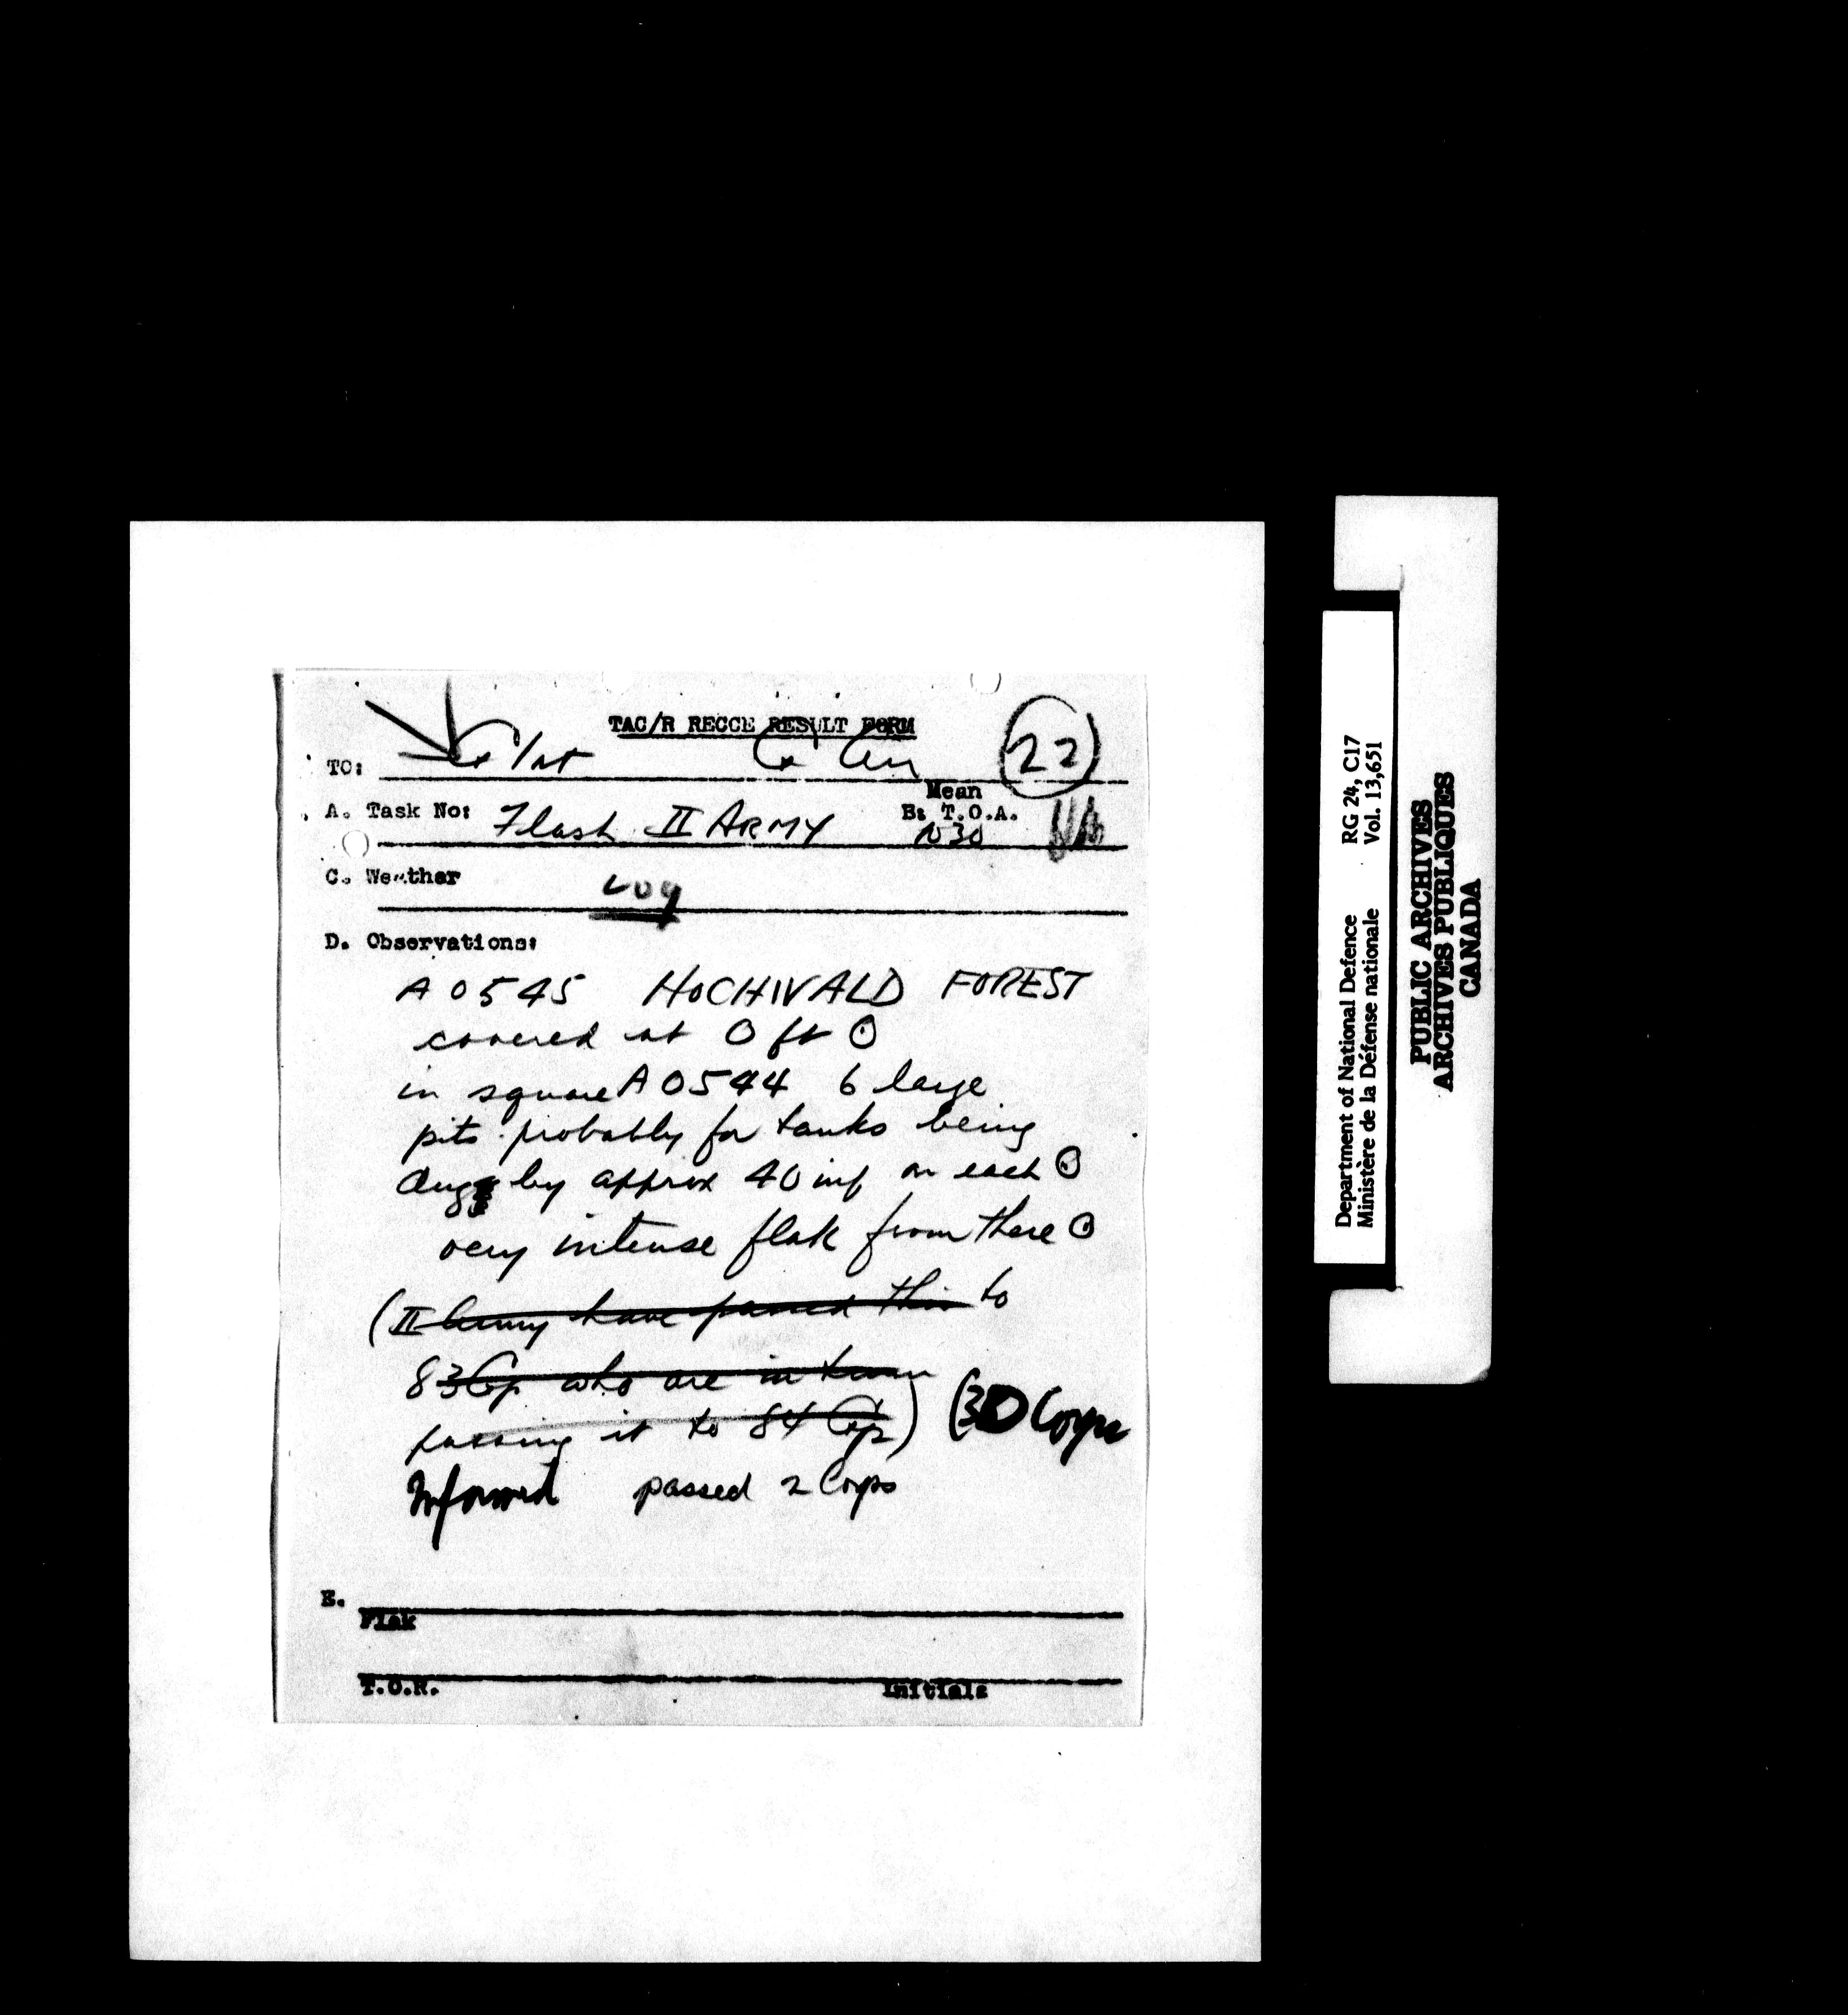 TAC/R RECCE RESULT FORM
22
TO: G Int
A. Task No: Flash II ARMY
Mean
B: T.O.A.
1030
C. Weather
log
D. Observations:
A 0545 HOCHWALD FOREST
covered at 0 ft ⊙
in square A 0544 6 large
pits probably for tanks being
dug by approx 40 inf on each ⊙
very intense flak from there ⊙
(II Army have passed this to
83 Gp who are in turn
passing it to 84 Gp) (30 Corps
Informed passed 2 Corps
E.
Flak
T.O.R. Initials
Department of National Defence RG 24, C17
Ministère de la Défense nationale Vol. 13,651
PUBLIC ARCHIVES
ARCHIVES PUBLIQUES
CANADA